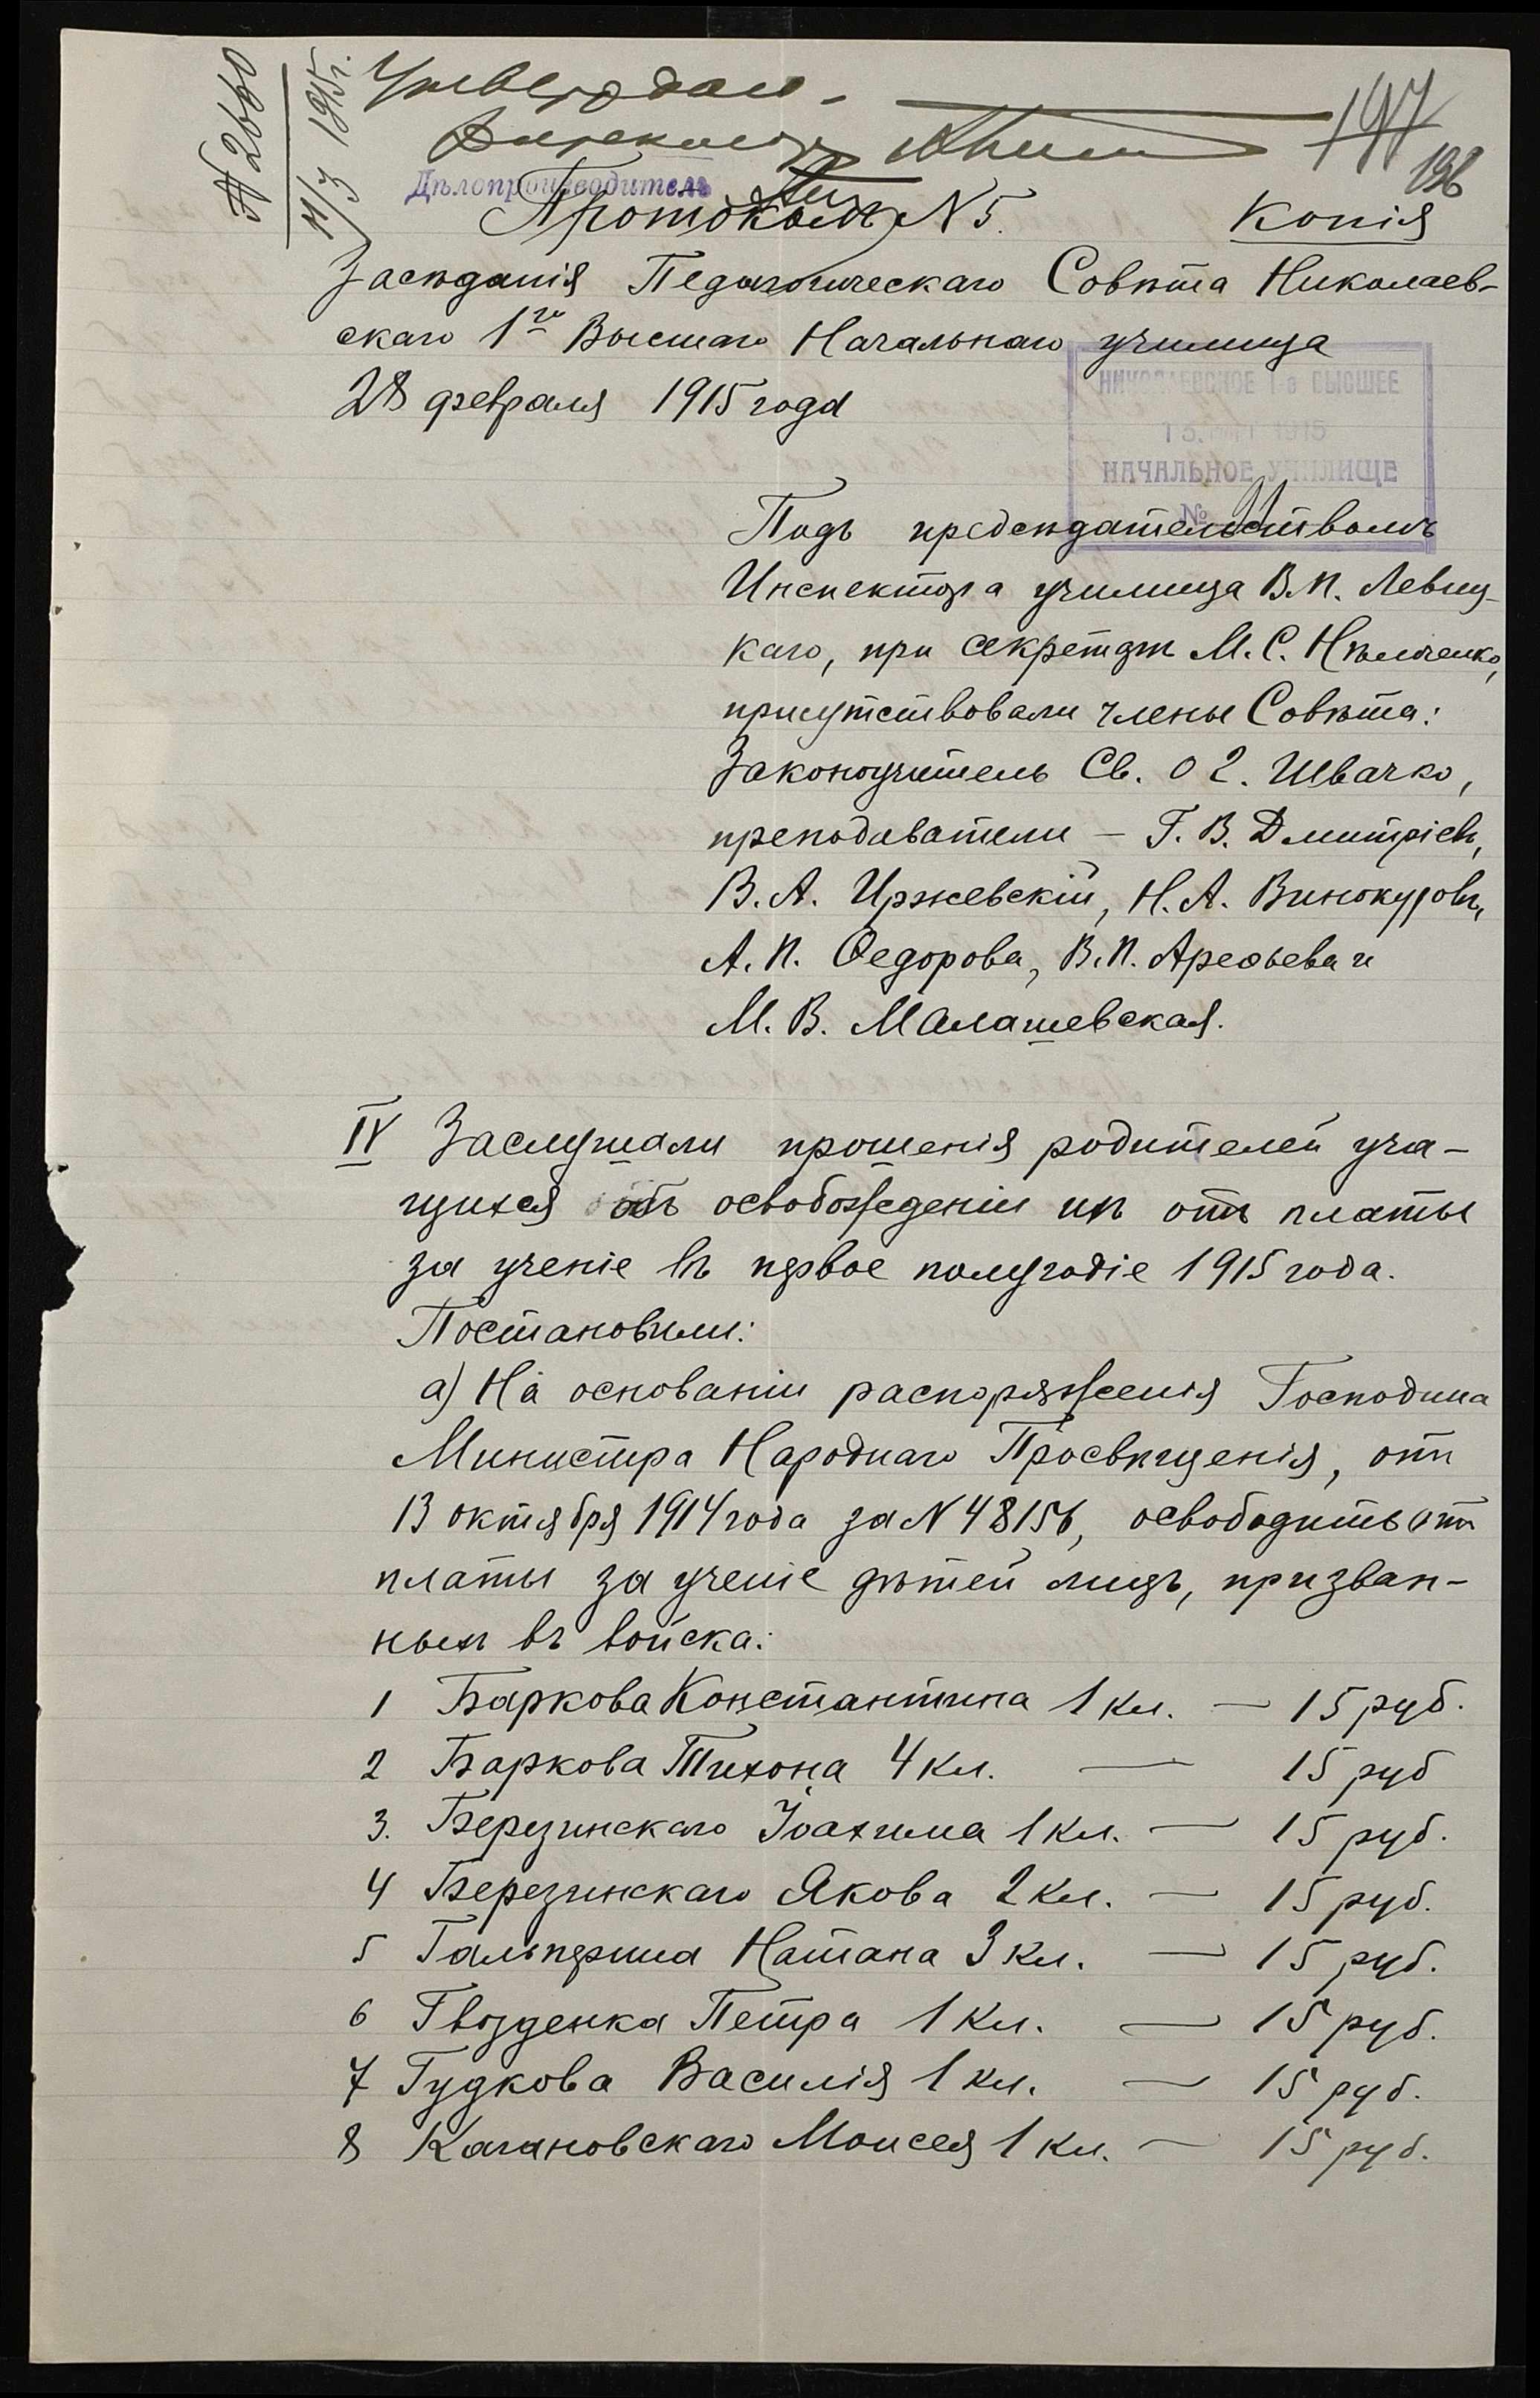 № 2660
11/3 1915 г.
Утверждаю.
Директоръ
197
196
Дѣлопроизводитель
Протоколъ N 5.
Копія
Засѣданія Педагогическаго Совѣта Николаев-
скаго 1го Высшаго Начальнаго училища
28 февраля 1915 года
НИКОЛАЕВСКОЕ 1-е ВЫСШЕЕ
13. 1915
НАЧАЛЬНОЕ УЧИЛИЩЕ
№
Подъ предсѣдательствомъ
Инспектора училища В.П. Левиц-
каго, при секретарѣ М.С. Нѣмченко,
присутствовали члены Совѣта:
Законоучитель Св. о Г. Швачко,
преподаватели – Г. В. Дмитріевъ,
В. А. Иржевскій, Н. А. Винокуровъ,
А. П. Ѳедорова, В. П. Арефьева и
М. В. Малашевская.
IV Заслушали прошенія родителей уча-
щихся объ освобожденіи ихъ отъ платы
за ученіе въ первое полугодіе 1915 года.
Постановили:
а) На основаніи распоряженія Господина
Министра Народнаго Просвѣщенія, отъ
13 октября 1914 года за N 48156, освободить отъ
платы за ученіе дѣтей лицъ, призван-
ныхъ въ войска:
1 Баркова Константина 1 кл. — 15 руб.
2 Баркова Тихона 4 кл. — 15 руб
3. Березинскаго Іоахима 1 кл. — 15 руб.
4 Березинскаго Якова 2 кл. — 15 руб.
5 Гальперина Натана 3 кл. — 15 руб.
6 Гвозденка Петра 1 кл. — 15 руб.
7 Гудкова Василія 1 кл. — 15 руб.
8 Кагановскаго Моисея 1 кл. — 15 руб.